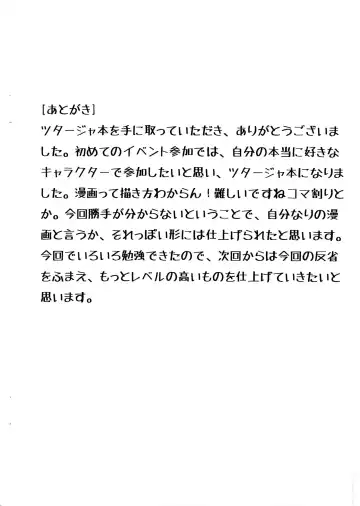 [あとがき]
ツタージャ本を手に取っていただき、ありがとうございま
した。初めてのイベント参加では、自分の本当に好きな
キャラクターで参加したいと思い、ツタージャ本になりま
した。漫画って描き方わからん!難しいですねコマ割りと
か。今回勝手が分からないということで、自分なりの漫
画と言うか、それっぽい形には仕上げられたと思います。
今回でいろいろ勉強できたので、次回からは今回の反省
をふまえ、もっとレベルの高いものを仕上げていきたいと
思います。